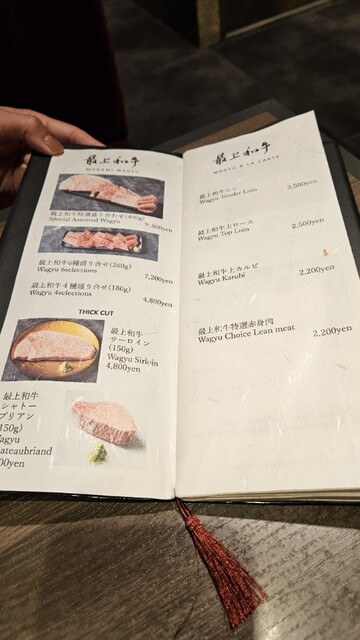 最上和牛
MOGAMI WAGYU
最上和牛特選盛り合わせ(400g)
Special Assorted Wagyu
最上和牛6種盛り合せ(260g)
Wagyu 6selections
7,200yen
最上和牛4種盛り合せ(180g)
Wagyu 4selections
4,800yen
THICK CUT
最上和牛
サーロイン
(150g)
Wagyu Sirloin
4,800yen
最上和牛
シャトー
ブリアン
150g)
agyu
ateaubriand
00yen
最上和牛
WAGYU A LA CARTE
最上和牛ヒレ
Wagyu Tender Loin
3,500yen
最上和牛上ロース
Wagyu Top Loin
2,500yen
最上和牛上カルビ
Wagyu Karubi
2,200yen
最上和牛特選赤身肉
Wagyu Choice Lean meat
2,200yen